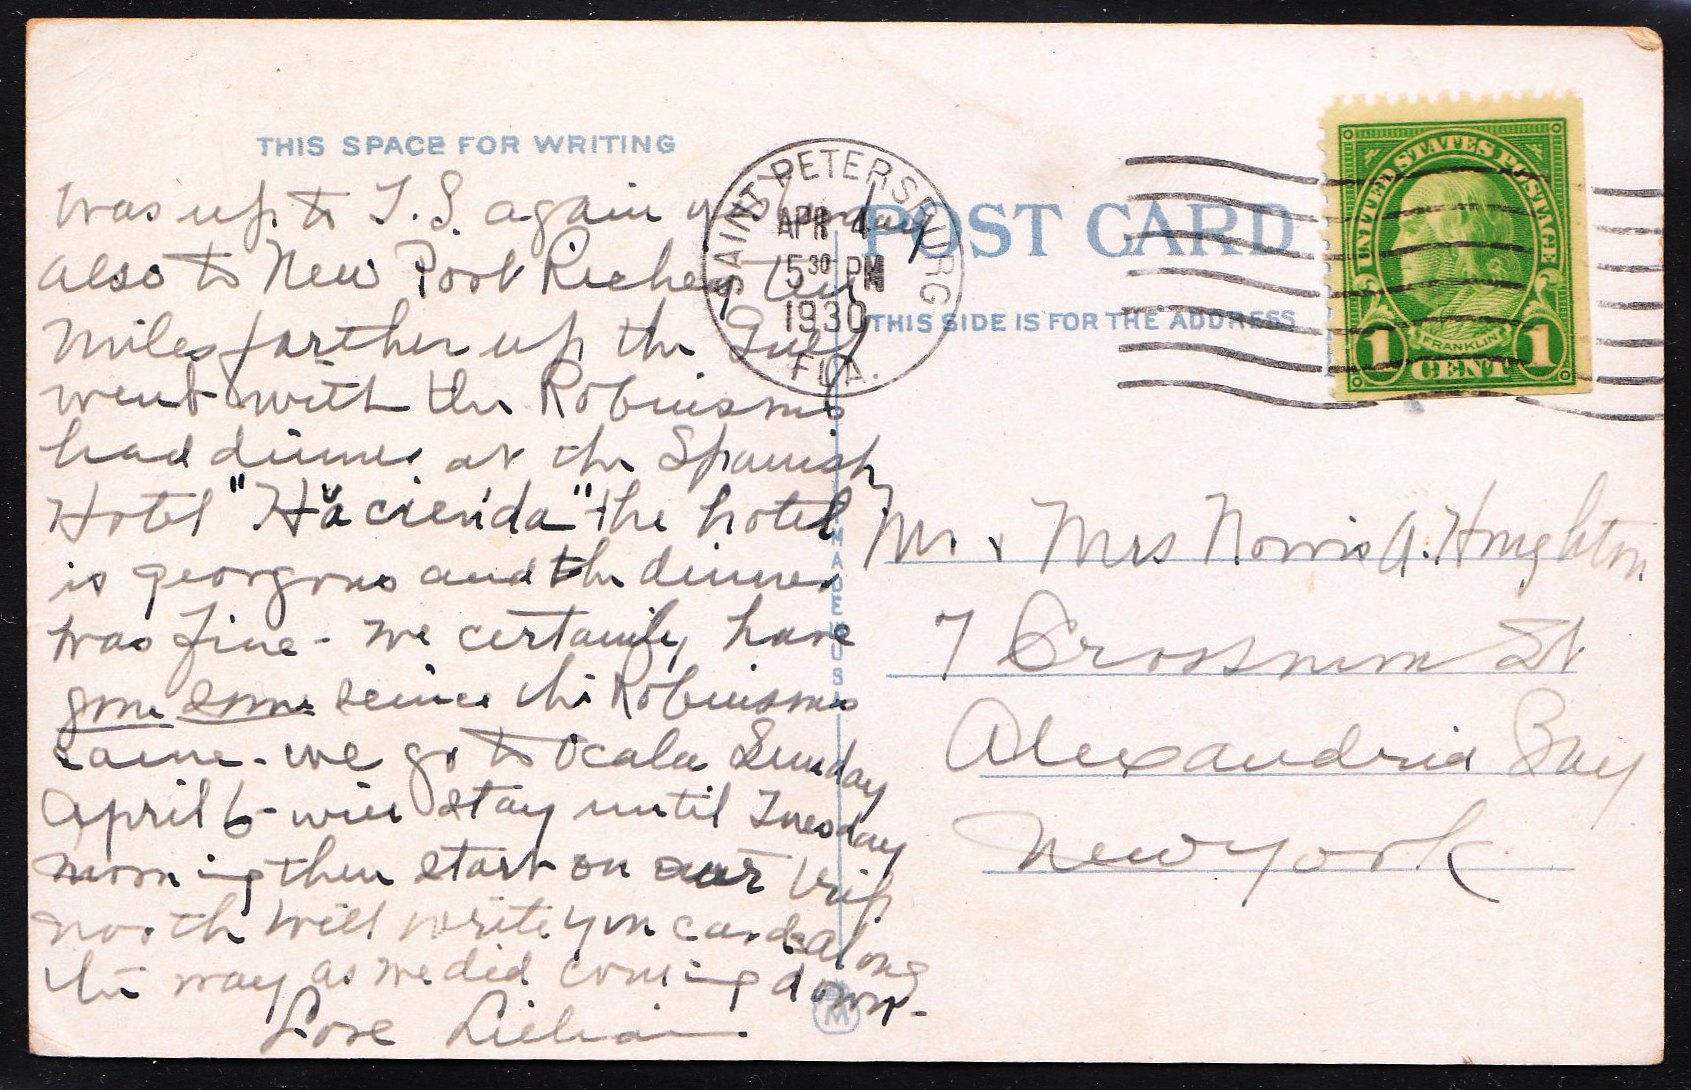 THIS SPACE FOR WRITING
was up to T.S. again yesterday
also to New Port Richey ten
miles farther up the Gulf
went with the Robinsons
had dinner at the Spanish
Hotel "Hacienda" the hotel
is georgous and the dinner
was fine - we certainly have
gone some seince the Robinsons
came. we go to Ocala Sunday
April 6 - will stay until Tuesday
morning then start on our trip
north will write you cards along
the way as we did coming down -
Love Lillian
SAINT PETERSBURG
APR 4
5 30 PM
1930
FLA.
POST CARD
THIS SIDE IS FOR THE ADDRESS
UNITED STATES POSTAGE
FRANKLIN
1 CENT 1
MADE IN U S A
Mr. & Mrs Norris A. Houghton
7 Crossmon St
Alexandria Bay
New York